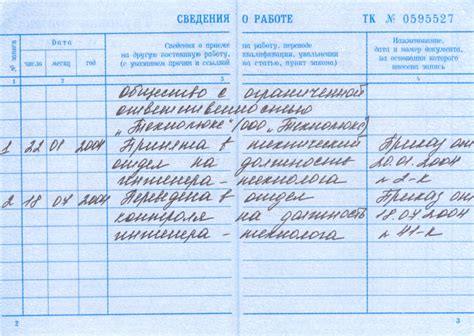 СВЕДЕНИЯ О РАБОТЕ ТК № 0595527
№ записи
Дата
число месяц год
Сведения о приеме на работу, переводе
на другую постоянную работу, квалификации, увольнении
(с указанием причин и ссылкой на статью, пункт закона)
Наименование,
дата и номер документа,
на основании которого
внесена запись
1 2 3 4
общество с ограниченной
ответственностью
„Технолюкс" (ООО „Технолюкс")
1 22 01 2004 Принята в технический Приказ от
отдел на должность 20.01.2004
инженера-технолога н 2-к
2 18 04 2004 Переведена в отдел Приказ от
контроля на должность 18.04.2004
инженера-технолога н 41-к
2 3